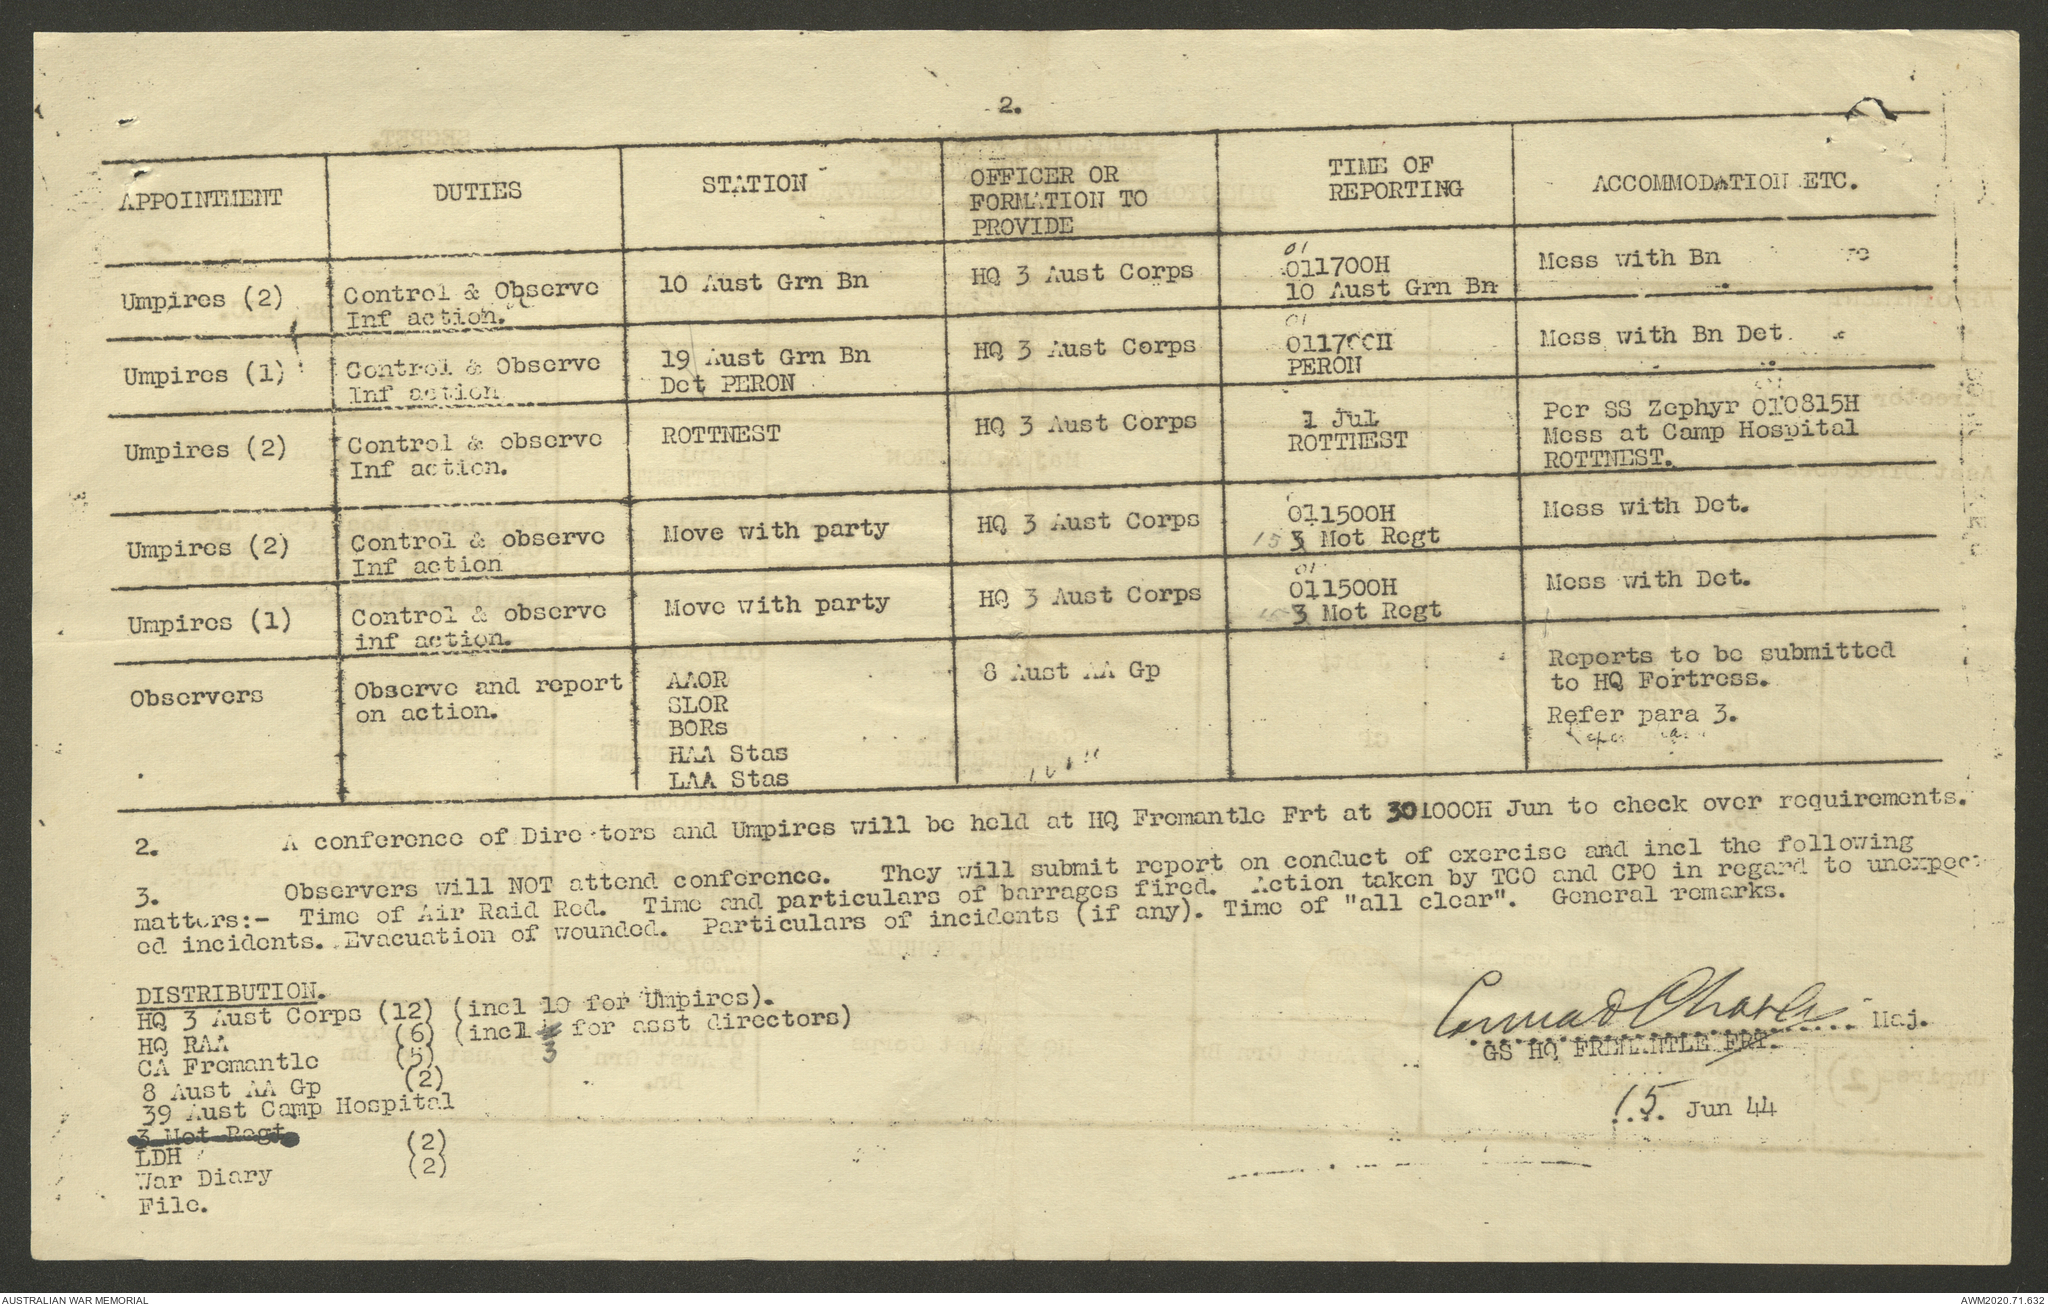 2.
APPOINTMENT DUTIES STATION OFFICER OR FORMATION TO PROVIDE TIME OF REPORTING ACCOMMODATION ETC.
Umpires (2) Control & Observe Inf action. 10 Aust Grn Bn HQ 3 Aust Corps 01 011700H 10 Aust Grn Bn Mess with Bn
Umpires (1) Control & Observe Inf action 19 Aust Grn Bn Det PERON HQ 3 Aust Corps 01 011700H PERON Mess with Bn Det
Umpires (2) Control & observe Inf action. ROTTNEST HQ 3 Aust Corps 1 Jul ROTTNEST Per SS Zephyr 010815H Mess at Camp Hospital ROTTNEST.
Umpires (2) Control & observe Inf action Move with party HQ 3 Aust Corps 011500H 15 3 Mot Regt Mess with Det.
Umpires (1) Control & observe inf action. Move with party HQ 3 Aust Corps 01 011500H 15 3 Mot Regt Mess with Det.
Observers Observe and report on action. AAOR SLOR BORs HAA Stas LAA Stas 8 Aust AA Gp Reports to be submitted to HQ Fortress. Refer para 3.
2. A conference of Directors and Umpires will be held at HQ Fremantle Frt at 301000H Jun to check over requirements.
3. Observers will NOT attend conference. They will submit report on conduct of exercise and incl the following
matters:- Time of Air Raid Red. Time and particulars of barrages fired. Action taken by TCO and CPO in regard to unexpect-
ed incidents. Evacuation of wounded. Particulars of incidents (if any). Time of "all clear". General remarks.
DISTRIBUTION.
HQ 3 Aust Corps (12) (incl 10 for Umpires).
HQ RAA (6) (incl 3 for asst directors)
CA Fremantle (5)
8 Aust AA Gp (2)
39 Aust Camp Hospital
3 Mot Regt
LDH (2)
War Diary (2)
File.
Conrad Charles Maj.
GS HQ FREMANTLE FRT.
15. Jun 44
AUSTRALIAN WAR MEMORIAL
AWM2020.71.632